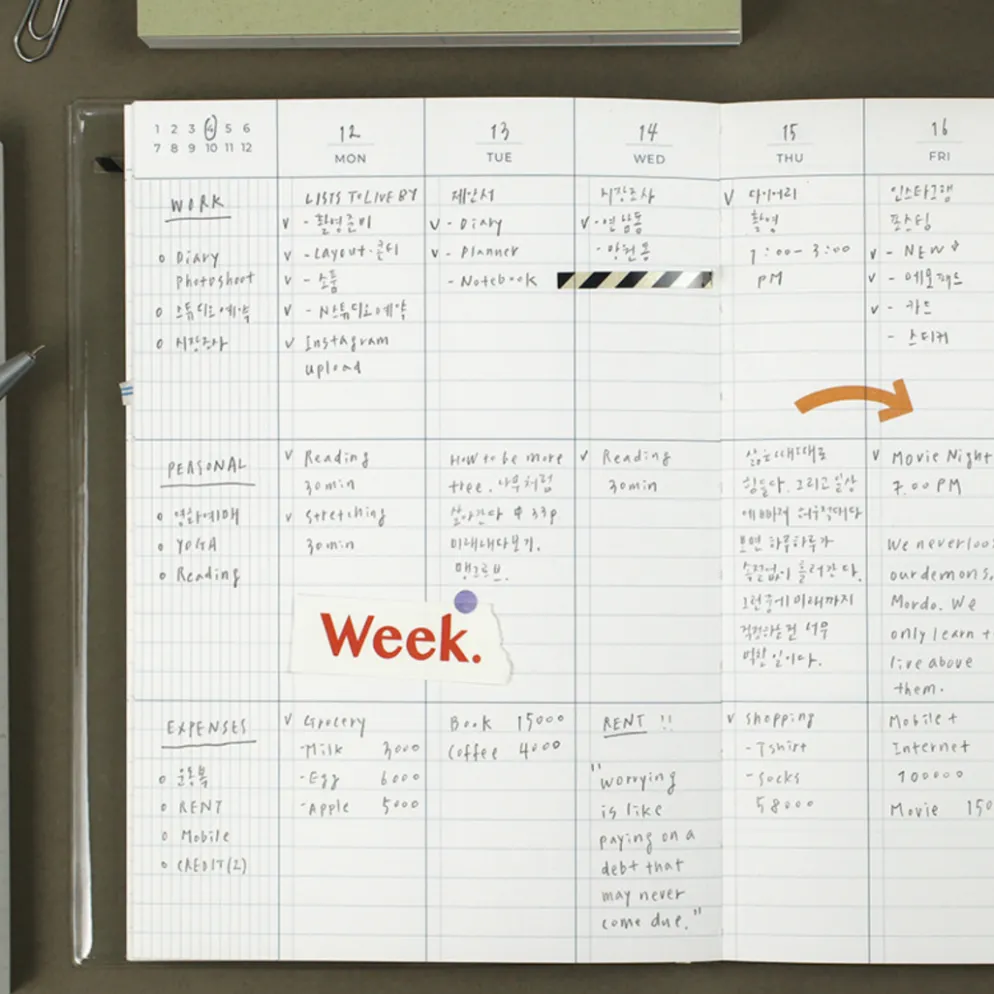 1 2 3 4 5 6
7 8 9 10 11 12
12
MON
13
TUE
14
WED
15
THU
16
FRI
WORK
o Diary
Photoshoot
o 스튜디오예약
o 시장조사
LISTS TO LIVE BY
v - 촬영준비
v - Layout·콘티
v - 소품
v - N스튜디오예약
v Instagram
upload
제안서
v - Diary
v - Planner
- Notebook
시장조사
v - 연남동
- 망원동
v 다이어리
촬영
1:00 - 3:00
PM
인스타그램
포스팅
v - NEW
v - 메모패드
v - 카드
- 스티커
PERSONAL
o 영화예매
o YOGA
o Reading
v Reading
30min
v Stretching
30min
How to be more
tree. 나무처럼
살아간다 33p
미래내다보기.
맹그로브.
v Reading
30min
삶은 때때로
힘들다. 그리고 일상
에 빠져 허우적대다
보면 하루하루가
속절없이 흘러간다.
그런 중에 미래까지
걱정하는 건 너무
벅찬 일이다.
v Movie Night
7.00 PM
We never loo
our demons,
Mordo. We
only learn t
live above
them.
Week.
EXPENSES
o 운동복
o RENT
o Mobile
o CREDIT(2)
v Grocery
-Milk 3000
-Egg 6000
-Apple 5000
Book 15000
Coffee 4000
RENT !!
"Worrying
is like
paying on a
debt that
may never
come due."
v shopping
- Tshirt
- socks
58000
Mobile +
Internet
100000
Movie 150